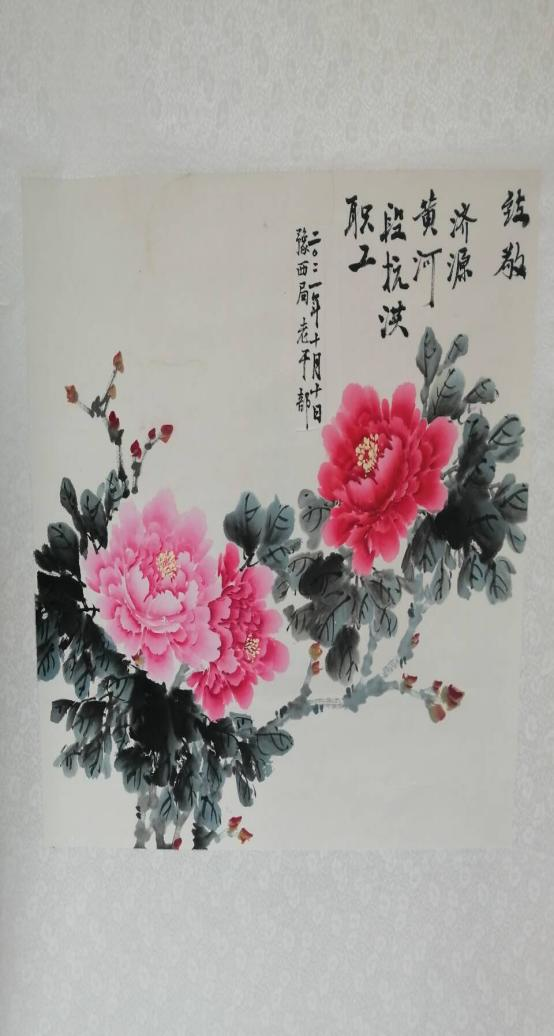 致敬
济源
黄河
段抗洪
职工
二〇二一年十月十日
豫西局老干部